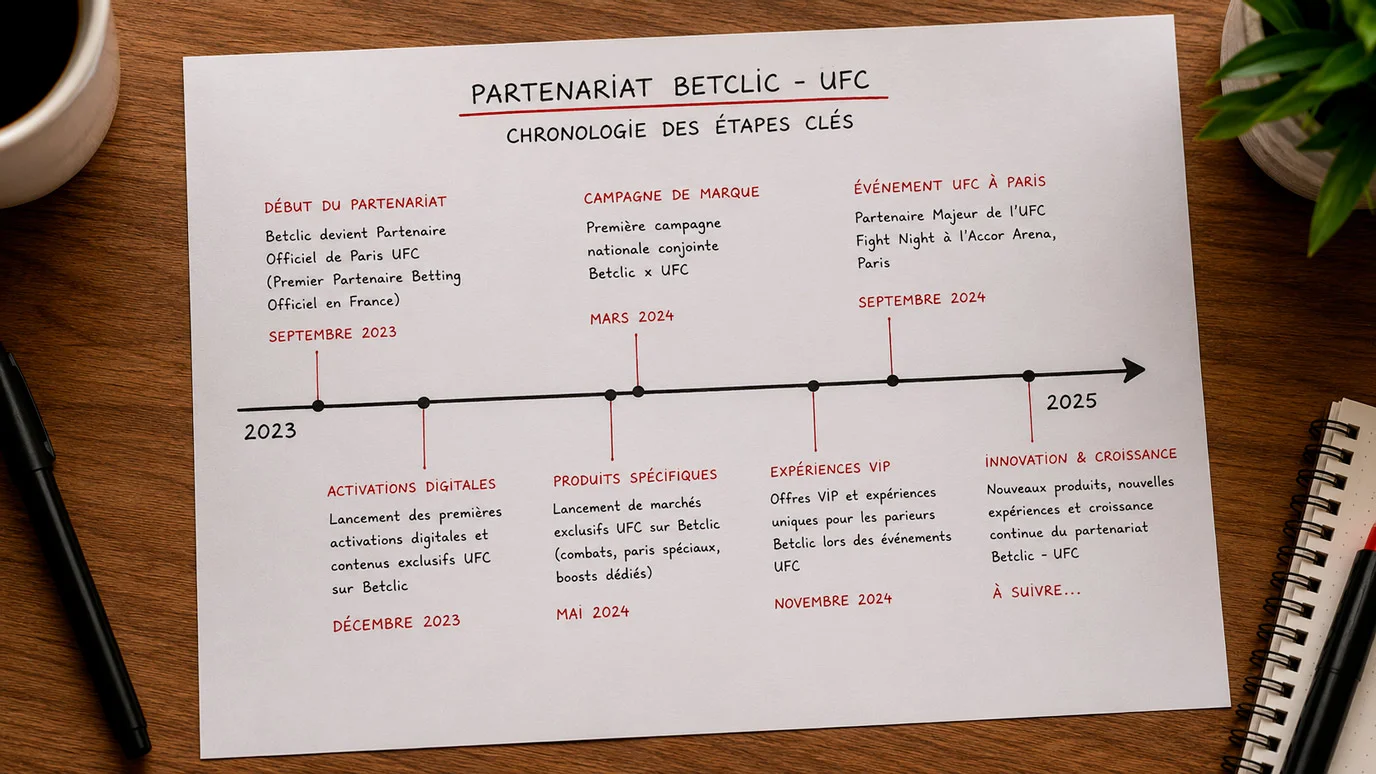 PARTENARIAT BETCLIC - UFC
CHRONOLOGIE DES ÉTAPES CLÉS
DÉBUT DU PARTENARIAT
Betclic devient Partenaire
Officiel de Paris UFC
(Premier Partenaire Betting
Officiel en France)
SEPTEMBRE 2023
CAMPAGNE DE MARQUE
Première campagne
nationale conjointe
Betclic x UFC
MARS 2024
ÉVÉNEMENT UFC À PARIS
Partenaire Majeur de l'UFC
Fight Night à l'Accor Arena,
Paris
SEPTEMBRE 2024
2023
2025
ACTIVATIONS DIGITALES
Lancement des premières
activations digitales et
contenus exclusifs UFC
sur Betclic
DÉCEMBRE 2023
PRODUITS SPÉCIFIQUES
Lancement de marchés
exclusifs UFC sur Betclic
(combats, paris spéciaux,
boosts dédiés)
MAI 2024
EXPÉRIENCES VIP
Offres VIP et expériences
uniques pour les parieurs
Betclic lors des événements
UFC
NOVEMBRE 2024
INNOVATION & CROISSANCE
Nouveaux produits, nouvelles
expériences et croissance
continue du partenariat
Betclic - UFC
À SUIVRE...